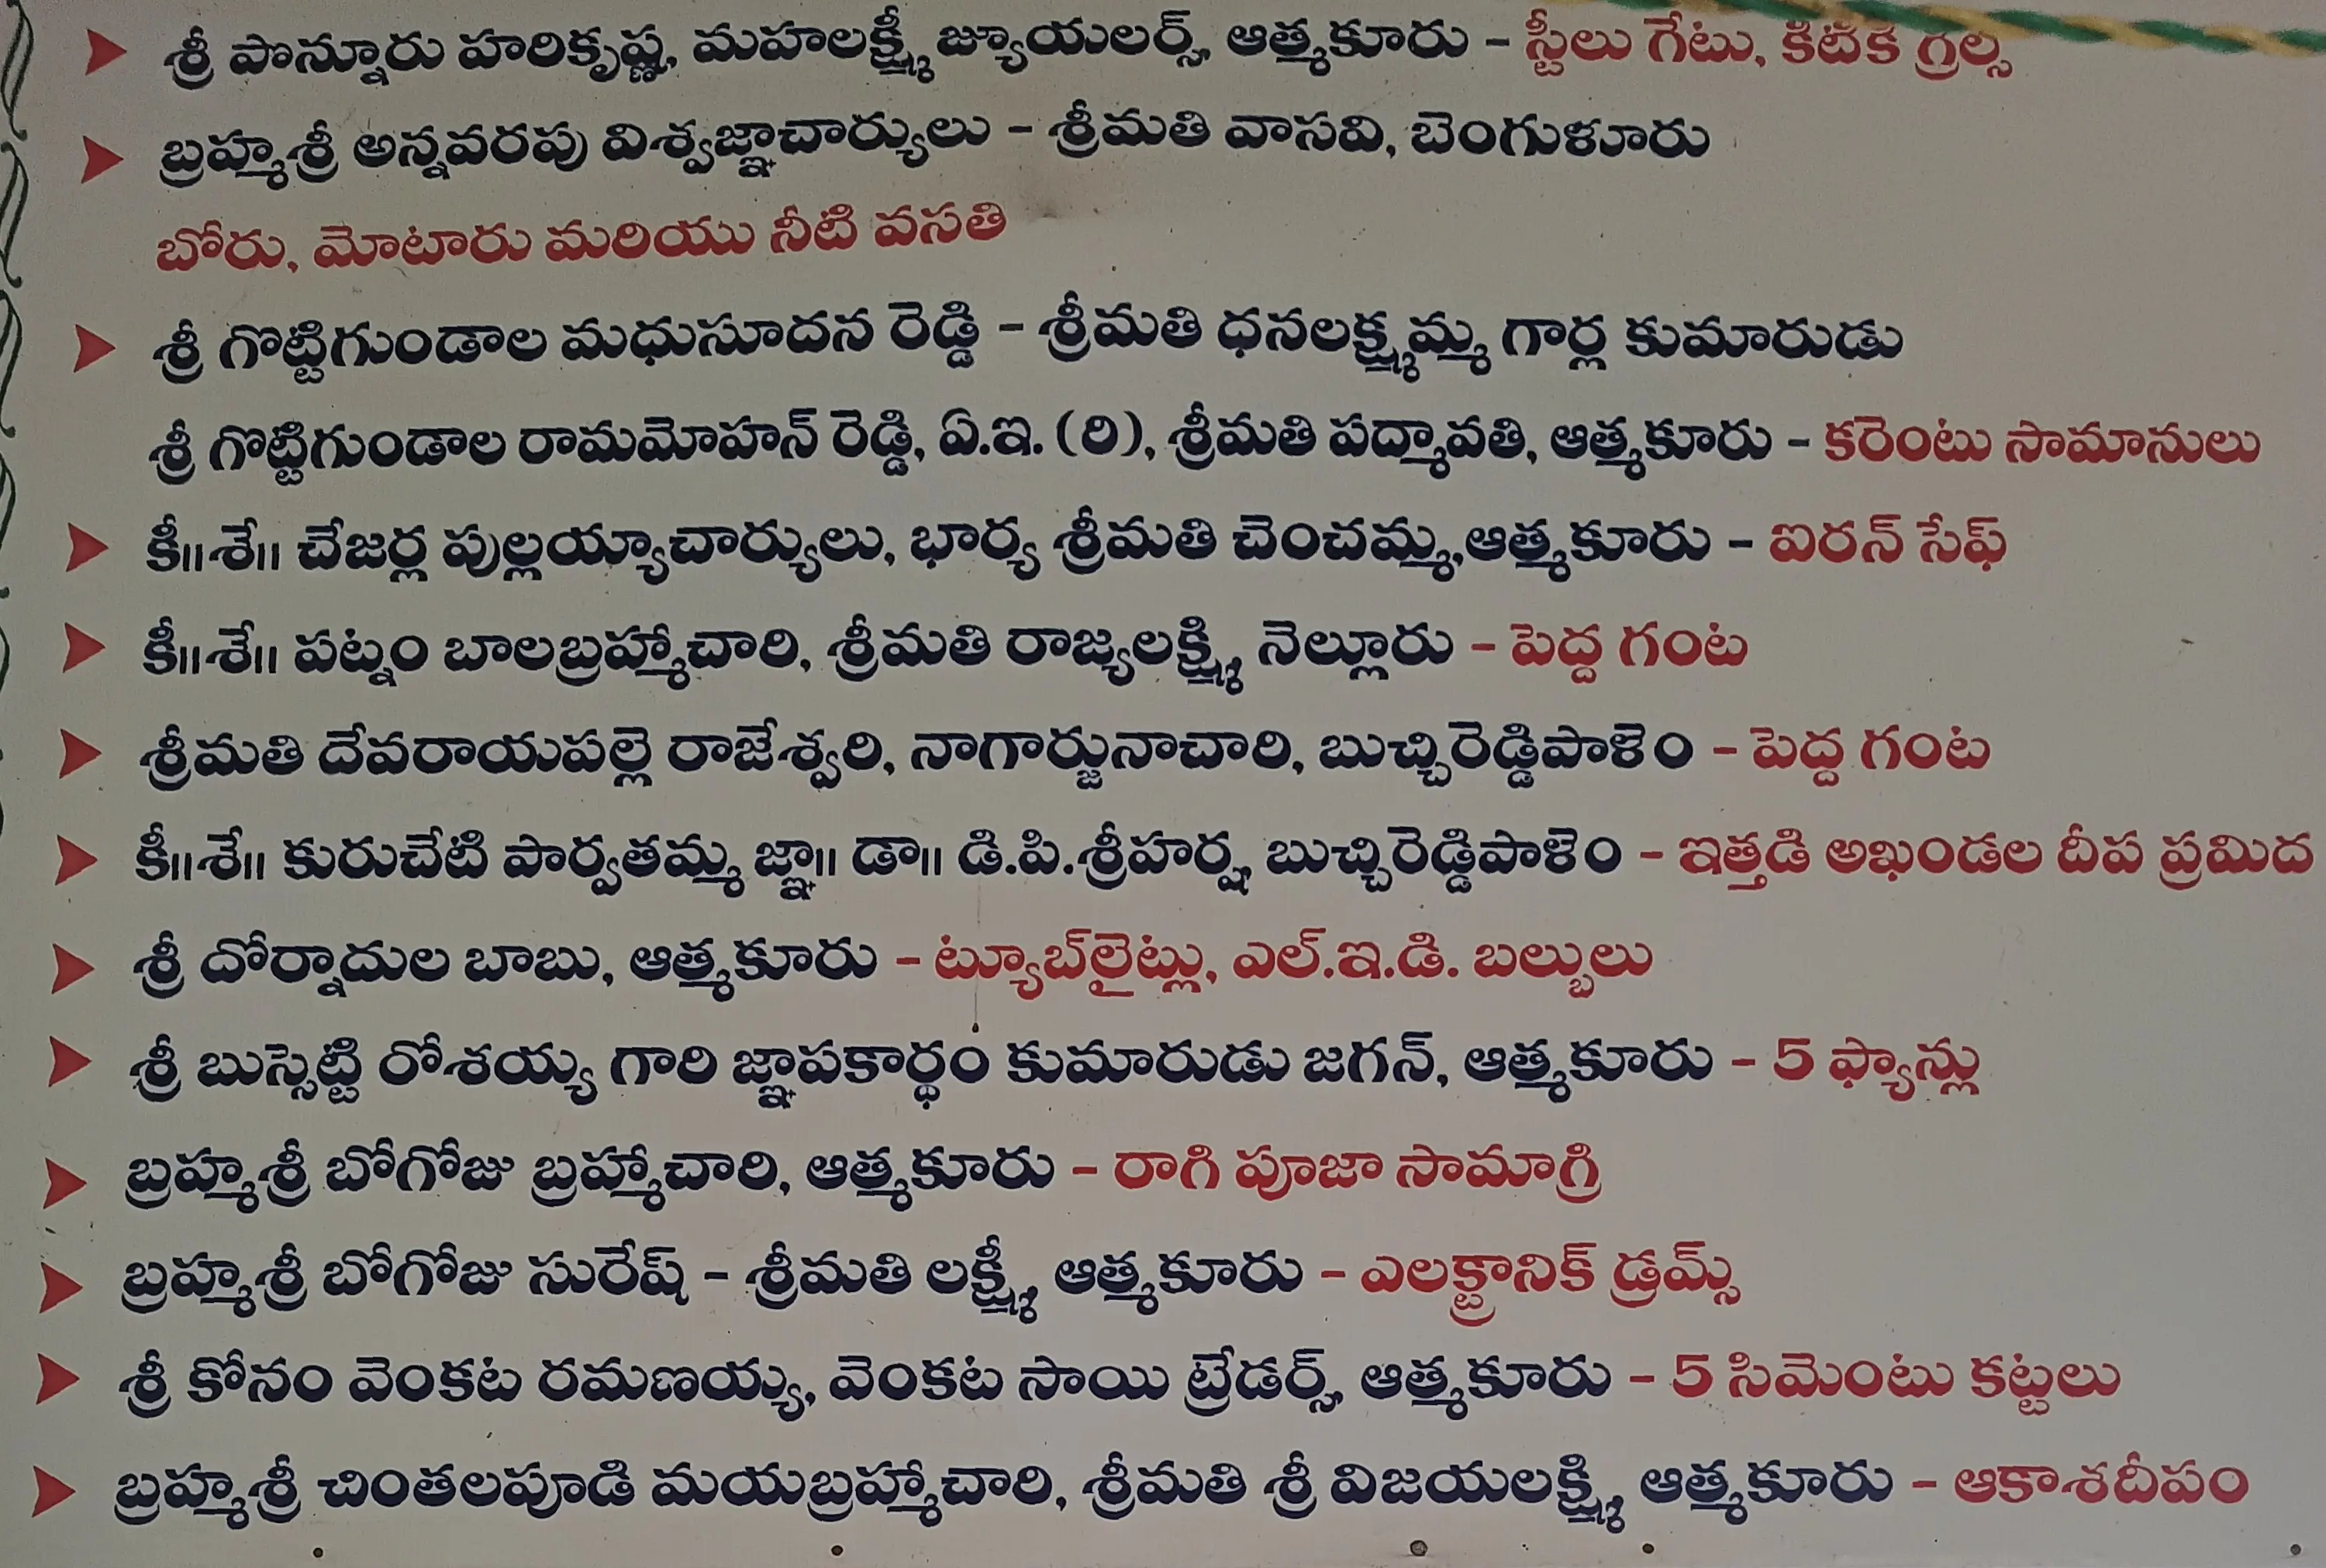 శ్రీ పొన్నూరు హరికృష్ణ, మహలక్ష్మీ జ్యూయలర్స్, ఆత్మకూరు - స్టీలు గేటు, కిటికి గ్రిల్స్
బ్రహ్మశ్రీ అన్నవరపు విశ్వజ్ఞాచార్యులు - శ్రీమతి వాసవి, బెంగుళూరు
బోరు, మోటారు మరియు నీటి వసతి
శ్రీ గొట్టిగుండాల మధుసూదన రెడ్డి - శ్రీమతి ధనలక్ష్మమ్మ గార్ల కుమారుడు
శ్రీ గొట్టిగుండాల రామమోహన్ రెడ్డి, ఏ.ఇ. (రి), శ్రీమతి పద్మావతి, ఆత్మకూరు - కరెంటు సామానులు
కీ॥శే॥ చేజర్ల పుల్లయ్యాచార్యులు, భార్య శ్రీమతి చెంచమ్మ,ఆత్మకూరు - ఐరన్ సేఫ్
కీ॥శే॥ పట్నం బాలబ్రహ్మాచారి, శ్రీమతి రాజ్యలక్ష్మి, నెల్లూరు - పెద్ద గంట
శ్రీమతి దేవరాయపల్లె రాజేశ్వరి, నాగార్జునాచారి, బుచ్చిరెడ్డిపాళెం - పెద్ద గంట
కీ॥శే॥ కురుచేటి పార్వతమ్మ జ్ఞా॥ డా॥ డి.పి.శ్రీహర్ష, బుచ్చిరెడ్డిపాళెం - ఇత్తడి అఖండల దీప ప్రమిద
శ్రీ దోర్నాదుల బాబు, ఆత్మకూరు - ట్యూబ్‌లైట్లు, ఎల్.ఇ.డి. బల్బులు
శ్రీ బుస్సెట్టి రోశయ్య గారి జ్ఞాపకార్థం కుమారుడు జగన్, ఆత్మకూరు - 5 ఫ్యాన్లు
బ్రహ్మశ్రీ బోగోజు బ్రహ్మాచారి, ఆత్మకూరు - రాగి పూజా సామాగ్రి
బ్రహ్మశ్రీ బోగోజు సురేష్ - శ్రీమతి లక్ష్మీ, ఆత్మకూరు - ఎలక్ట్రానిక్ డ్రమ్స్
శ్రీ కోనం వెంకట రమణయ్య, వెంకట సాయి ట్రేడర్స్, ఆత్మకూరు - 5 సిమెంటు కట్టలు
బ్రహ్మశ్రీ చింతలపూడి మయబ్రహ్మాచారి, శ్రీమతి శ్రీ విజయలక్ష్మి, ఆత్మకూరు - ఆకాశదీపం